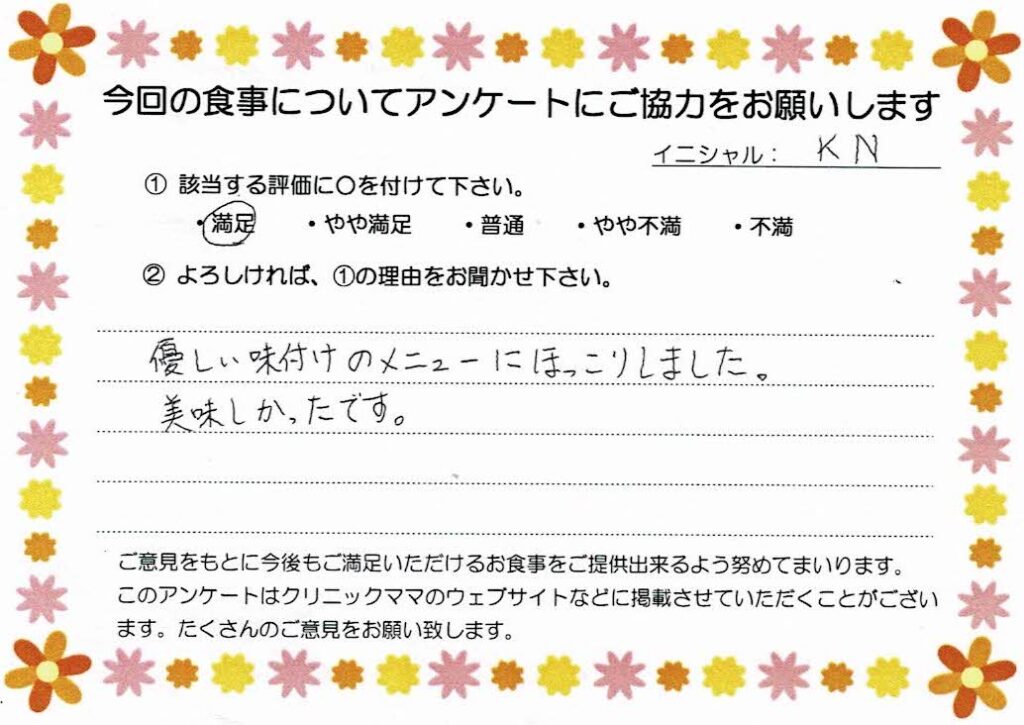 今回の食事についてアンケートにご協力をお願いします
イニシャル： KN
① 該当する評価に○を付けて下さい。
・満足 ・やや満足 ・普通 ・やや不満 ・不満
② よろしければ、①の理由をお聞かせ下さい。
優しい味付けのメニューにほっこりしました。
美味しかったです。
ご意見をもとに今後もご満足いただけるお食事をご提供出来るよう努めてまいります。
このアンケートはクリニックママのウェブサイトなどに掲載させていただくことがござい
ます。たくさんのご意見をお願い致します。